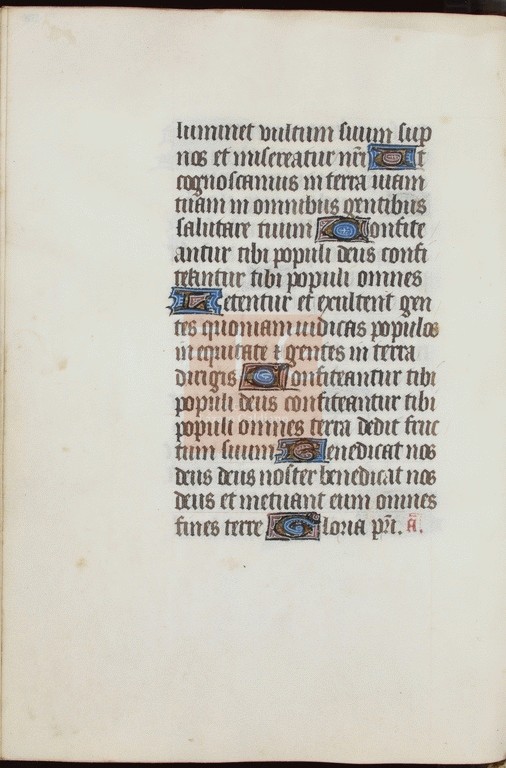 luminet vultum suum sup
nos et misereatur nr̄i Ut
cognoscamus in terra viam
tuam in omnibus gentibus
salutare tuum Confite
antur tibi populi deus confi
teantur tibi populi omnes
Letentur et exultent gen
tes quoniam iudicas populos
in equitate ⁊ gentes in terra
dirigis Confiteantur tibi
populi deus confiteantur tibi
populi omnes terra dedit fruc
tum suum Benedicat nos
deus deus noster benedicat nos
deus et metuant eum omnes
fines terre Gloria pr̄i. ā.